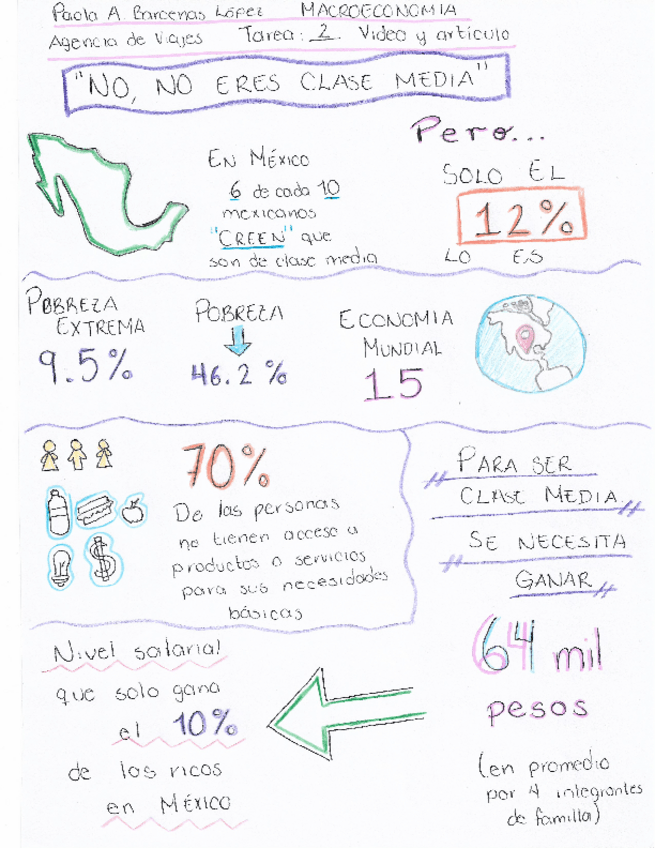 Paola A. Barcenas López MACROECONOMIA
Agencia de Viajes Tarea: 2. Video y artículo
"NO, NO ERES CLASE MEDIA"
EN México
6 de cada 10
mexicanos
"CREEN" que
son de clase media
Pero...
SOLO EL
12%
LO ES
POBREZA
EXTREMA
9.5%
POBREZA
46.2 %
ECONOMIA
MUNDIAL
15
70%
De las personas
no tienen acceso a
productos o servicios
para sus necesidades
básicas
PARA SER
CLASE MEDIA
SE NECESITA
GANAR
64 mil
pesos
(en promedio
por 4 integrantes
de familia)
Nivel salarial
que solo gana
el 10%
de los ricos
en MÉXICO